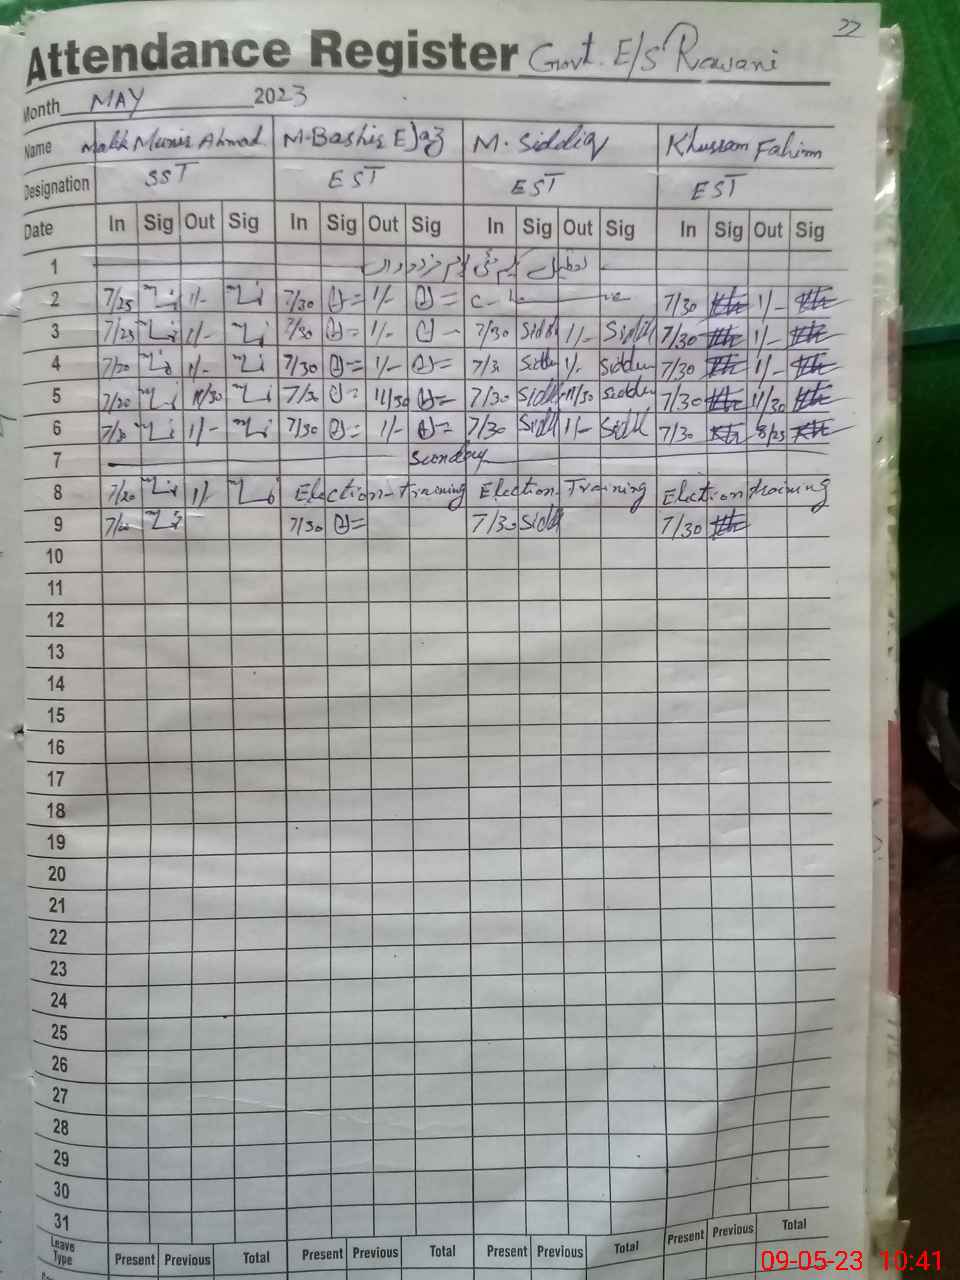 22
Attendance Register Govt. E/S Rawani
Month MAY 2023
Name Malik Munir Ahmad M. Bashir Ejaz M. Siddiq Khurram Fahim
Designation SST EST EST EST
Date In Sig Out Sig In Sig Out Sig In Sig Out Sig In Sig Out Sig
1 تعطیل یکم مئی یوم مزدوراں
2 7/25 1/- 7/30 1/- 7/30 1/-
3 7/25 1/- 7/30 1/- 7/30 Sidd 1/- Sidd 7/30 1/-
4 7/20 1/- 7/30 1/- 7/30 1/- 7/30 1/-
5 7/20 11/30 7/30 11/30 7/30 11/30 7/30 11/30
6 7/30 1/- 7/30 1/- 7/30 Sidd 1/- Sidd 7/30 8/25
7 Sunday
8 7/20 1/- Election-Training Election-Training Election training
9 7/30 7/30 Sidd 7/30
10
11
12
13
14
15
16
17
18
19
20
21
22
23
24
25
26
27
28
29
30
31
Leave Type Present Previous Total Present Previous Total Present Previous Total Present Previous Total
09-05-23 10:41